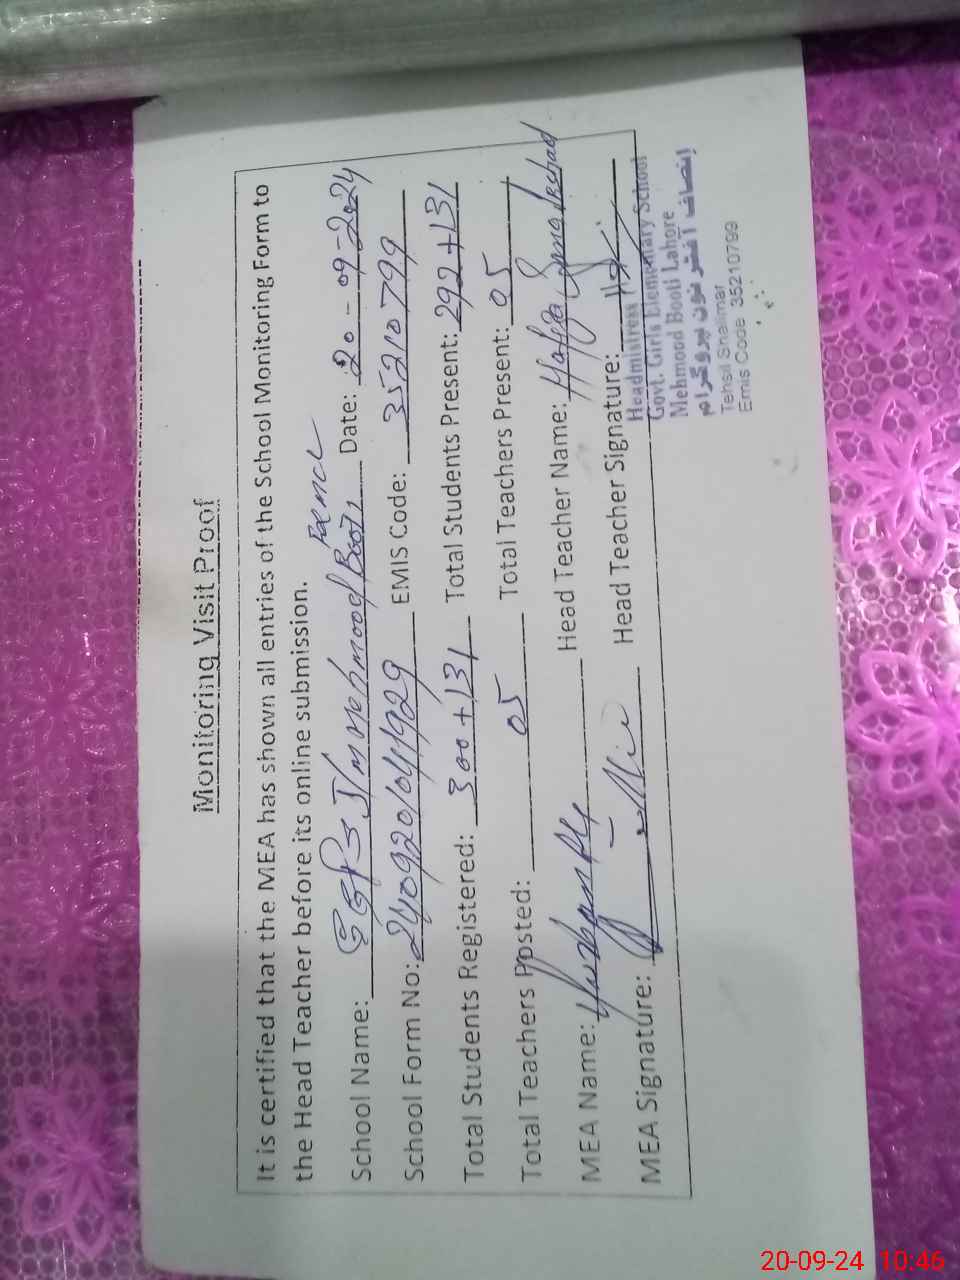 Monitoring Visit Proof
It is certified that the MEA has shown all entries of the School Monitoring Form to
the Head Teacher before its online submission.
School Name: GGES Mehmood Booti Date: 20-09-2024
School Form No: EMIS Code: 35210799
Total Students Registered: 300+131 Total Students Present: 292+131
Total Teachers Posted: 05 Total Teachers Present: 05
MEA Name: Head Teacher Name: Hafiza Irshad
MEA Signature: Head Teacher Signature:
Headmistress
Govt. Girls Elementary School
Mehmood Booti Lahore
إنصاف آفٹر نون پروگرام
Tehsil Shalimar
Emis Code 35210799
20-09-24 10:46